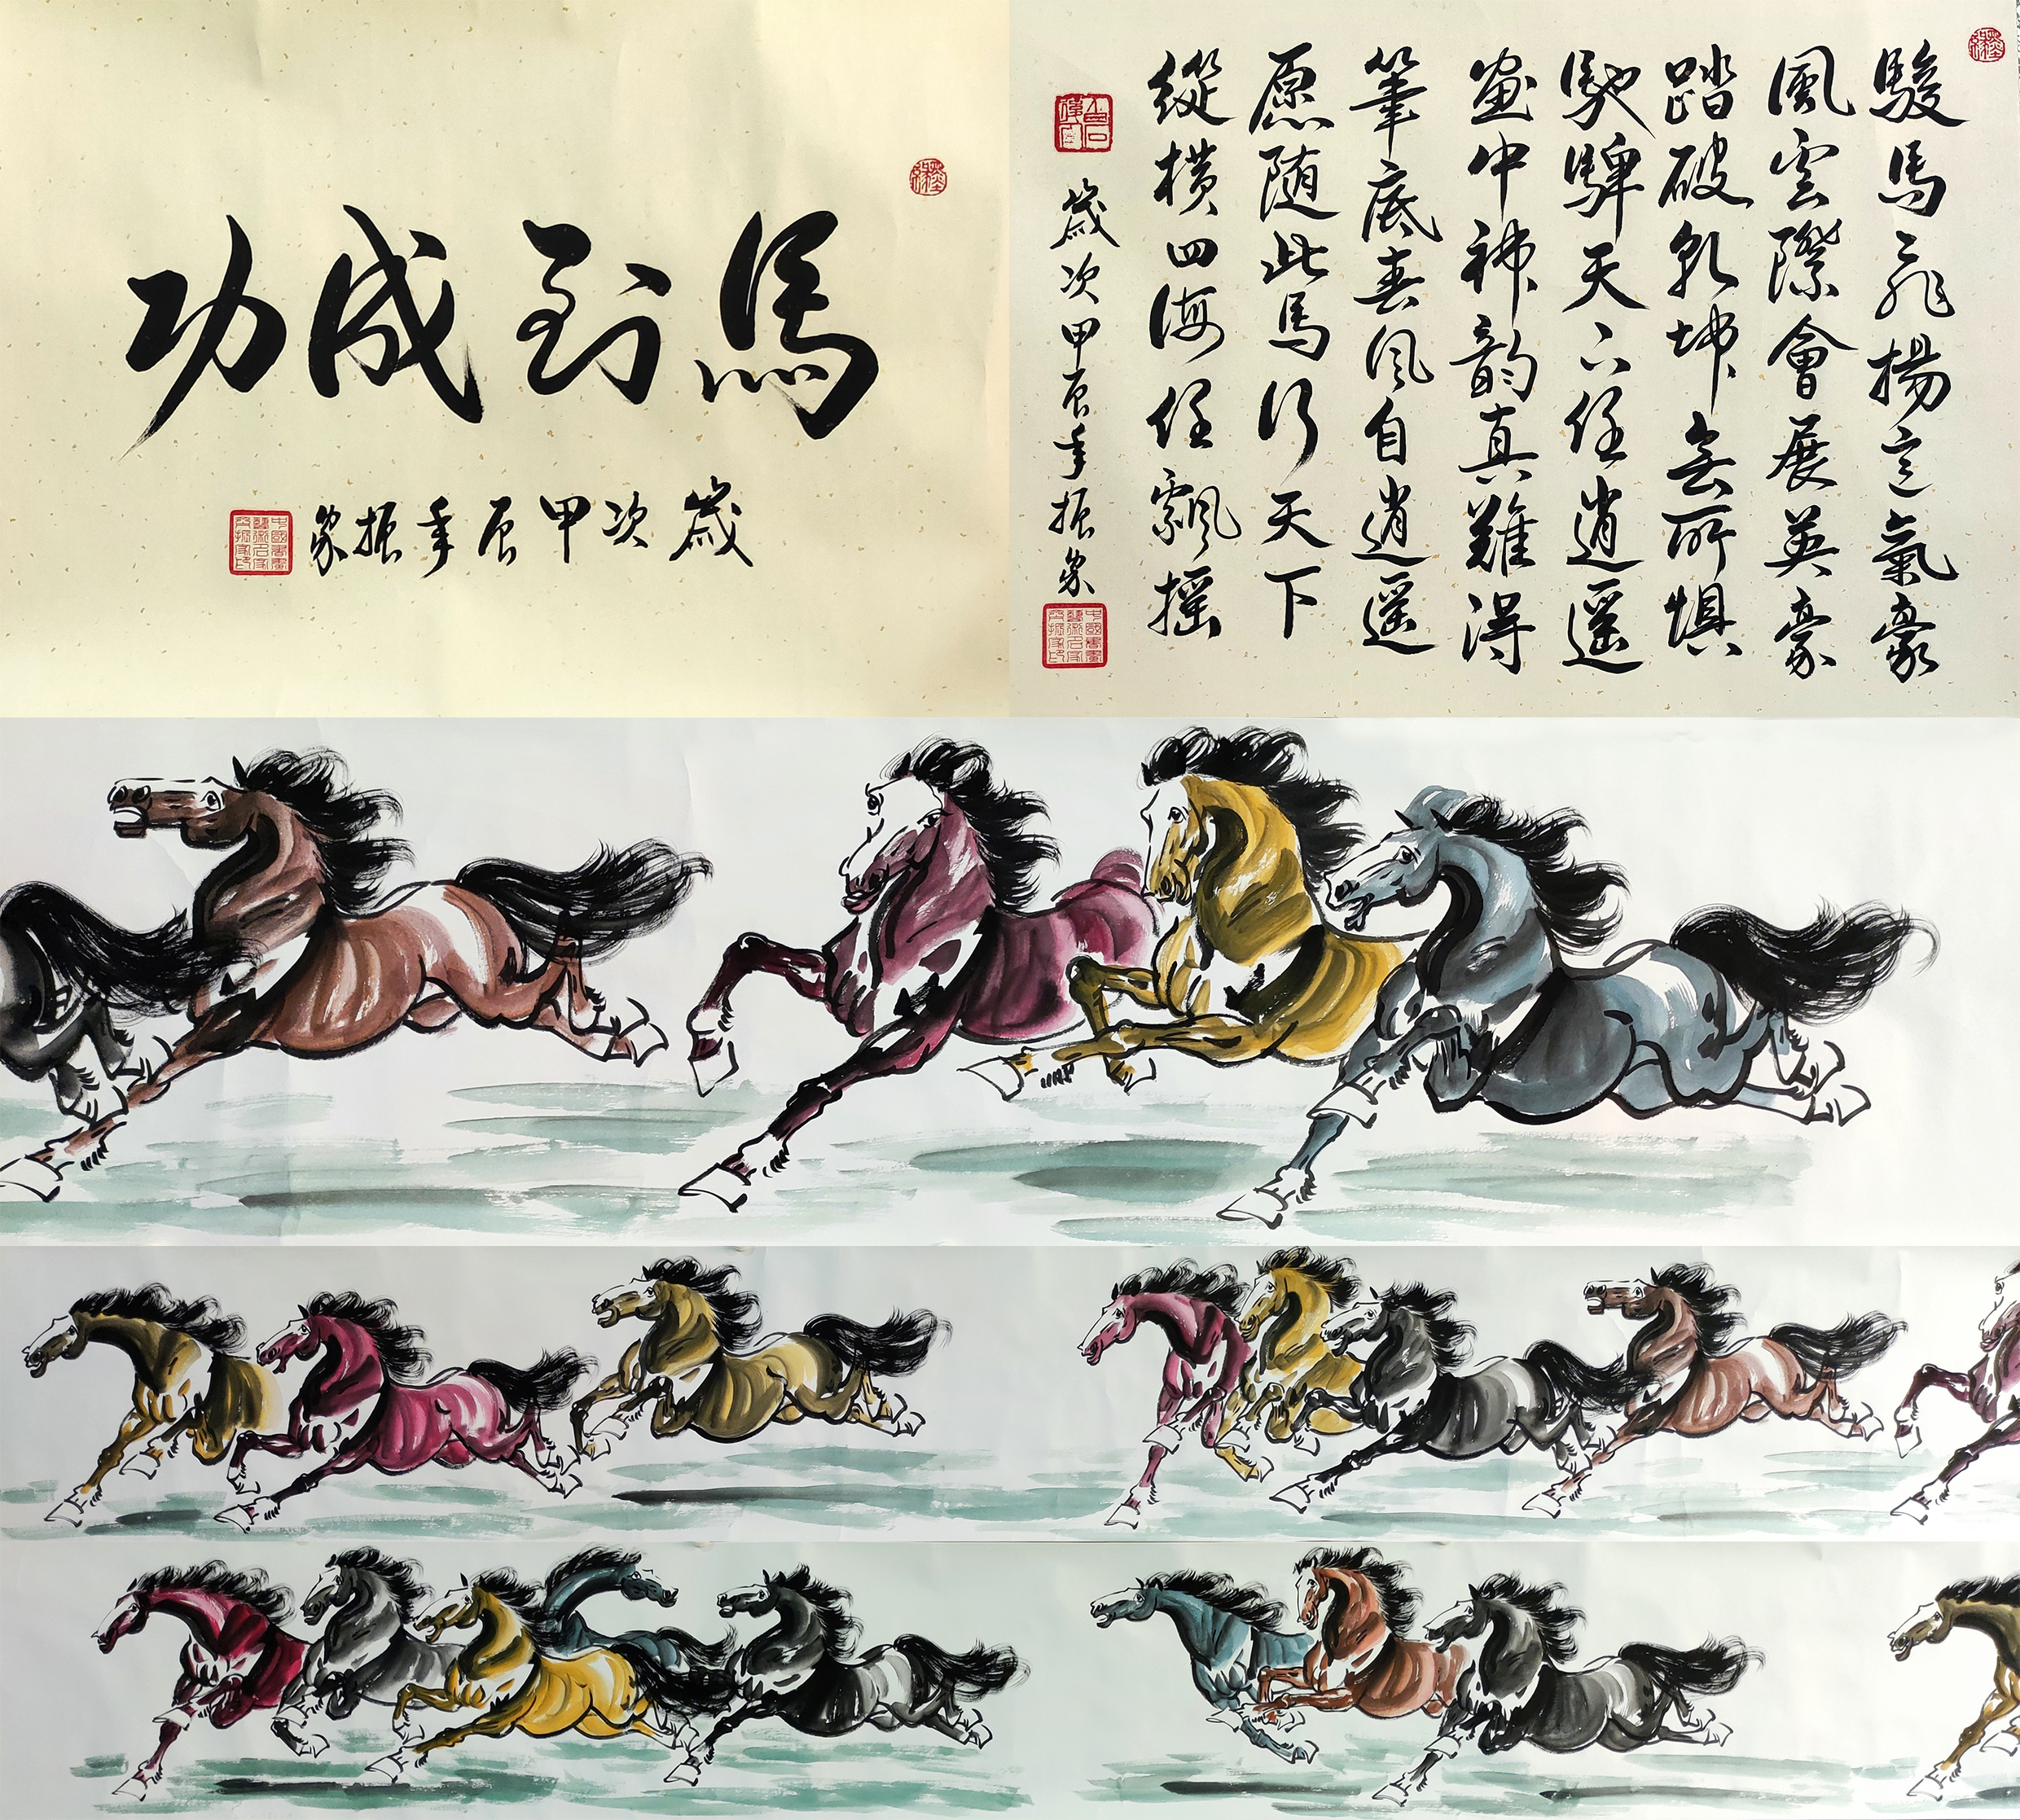 馬到成功
歲次甲辰年振家
駿馬飛揚意氣豪
風雲際會展英豪
踏破乾坤無所懼
馳騁天下任逍遥
畫中神韵真難得
筆底春风自逍遥
愿随此馬行天下
縱横四海任飄摇
歲次甲辰年振家